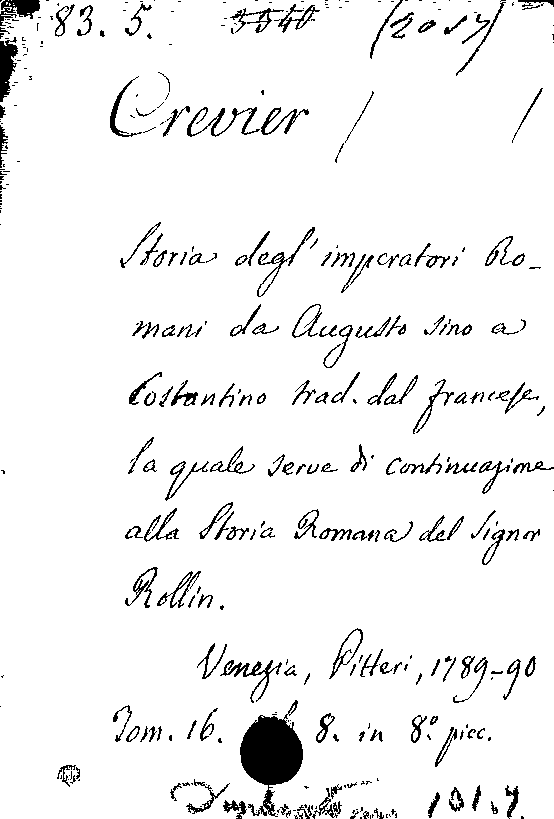 83. 5. 3540 (2057)
Crevier
Storia degl' imperatori Ro-
mani da Augusto sino a
Costantino trad. dal francese,
la quale serve di continuazione
alla Storia Romana del Signor
Rollin.
Venezia, Pitteri, 1789-90
Tom. 16. 8. in 8.º picc.
101.7.